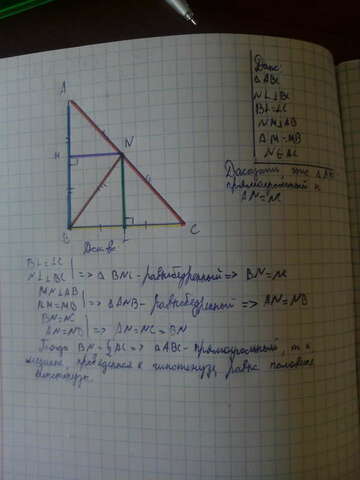 A
Дано:
△ABC
NL⊥BC
BL=LC
NM⊥AB
AM=MB
N∈AC
Доказать, что △ABC
прямоугольный и
AN=NC
N
M
B
L
C
Док-во:
BL=LC
NL⊥BC => △BNC - равнобедренный => BN=NC
MN⊥AB
AM=MB => △ANB - равнобедренный => AN=NB
BN=NC
AN=NB => AN=NC=BN
Тогда BN=½AC => △ABC - прямоугольный, т.к
медиана, проведенная к гипотенузе равна половине
гипотенузы.